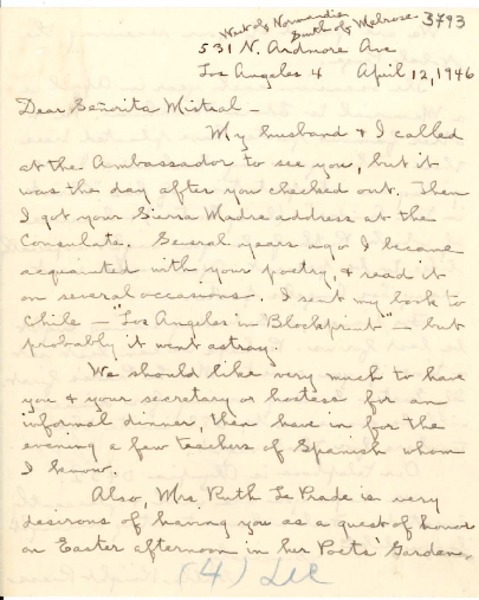 West of Normandie
South of Melrose
3793
531 N. Ardmore Ave
Los Angeles 4 April 12, 1946
Dear Señorita Mistral -
My husband & I called
at the Ambassador to see you, but it
was the day after you checked out. Then
I got your Sierra Madre address at the
Consulate. Several years ago I became
acquainted with your poetry, & read it
on several occasions. I sent my book to
Chile - "Los Angeles in Blockprint" - but
probably it went astray.
We should like very much to have
you & your secretary or hostess for an
informal dinner, then have in for the
evening a few teachers of Spanish whom
I know.
Also, Mrs Ruth Le Prade is very
desirous of having you as a guest of honor
on Easter afternoon in her Poets' Garden,
(4)